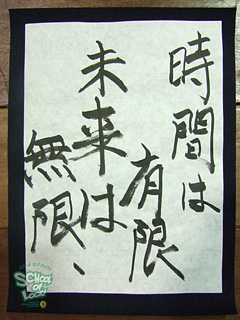 時間は
有限
未来は
無限、
SCHOOL
OF
LOCK!